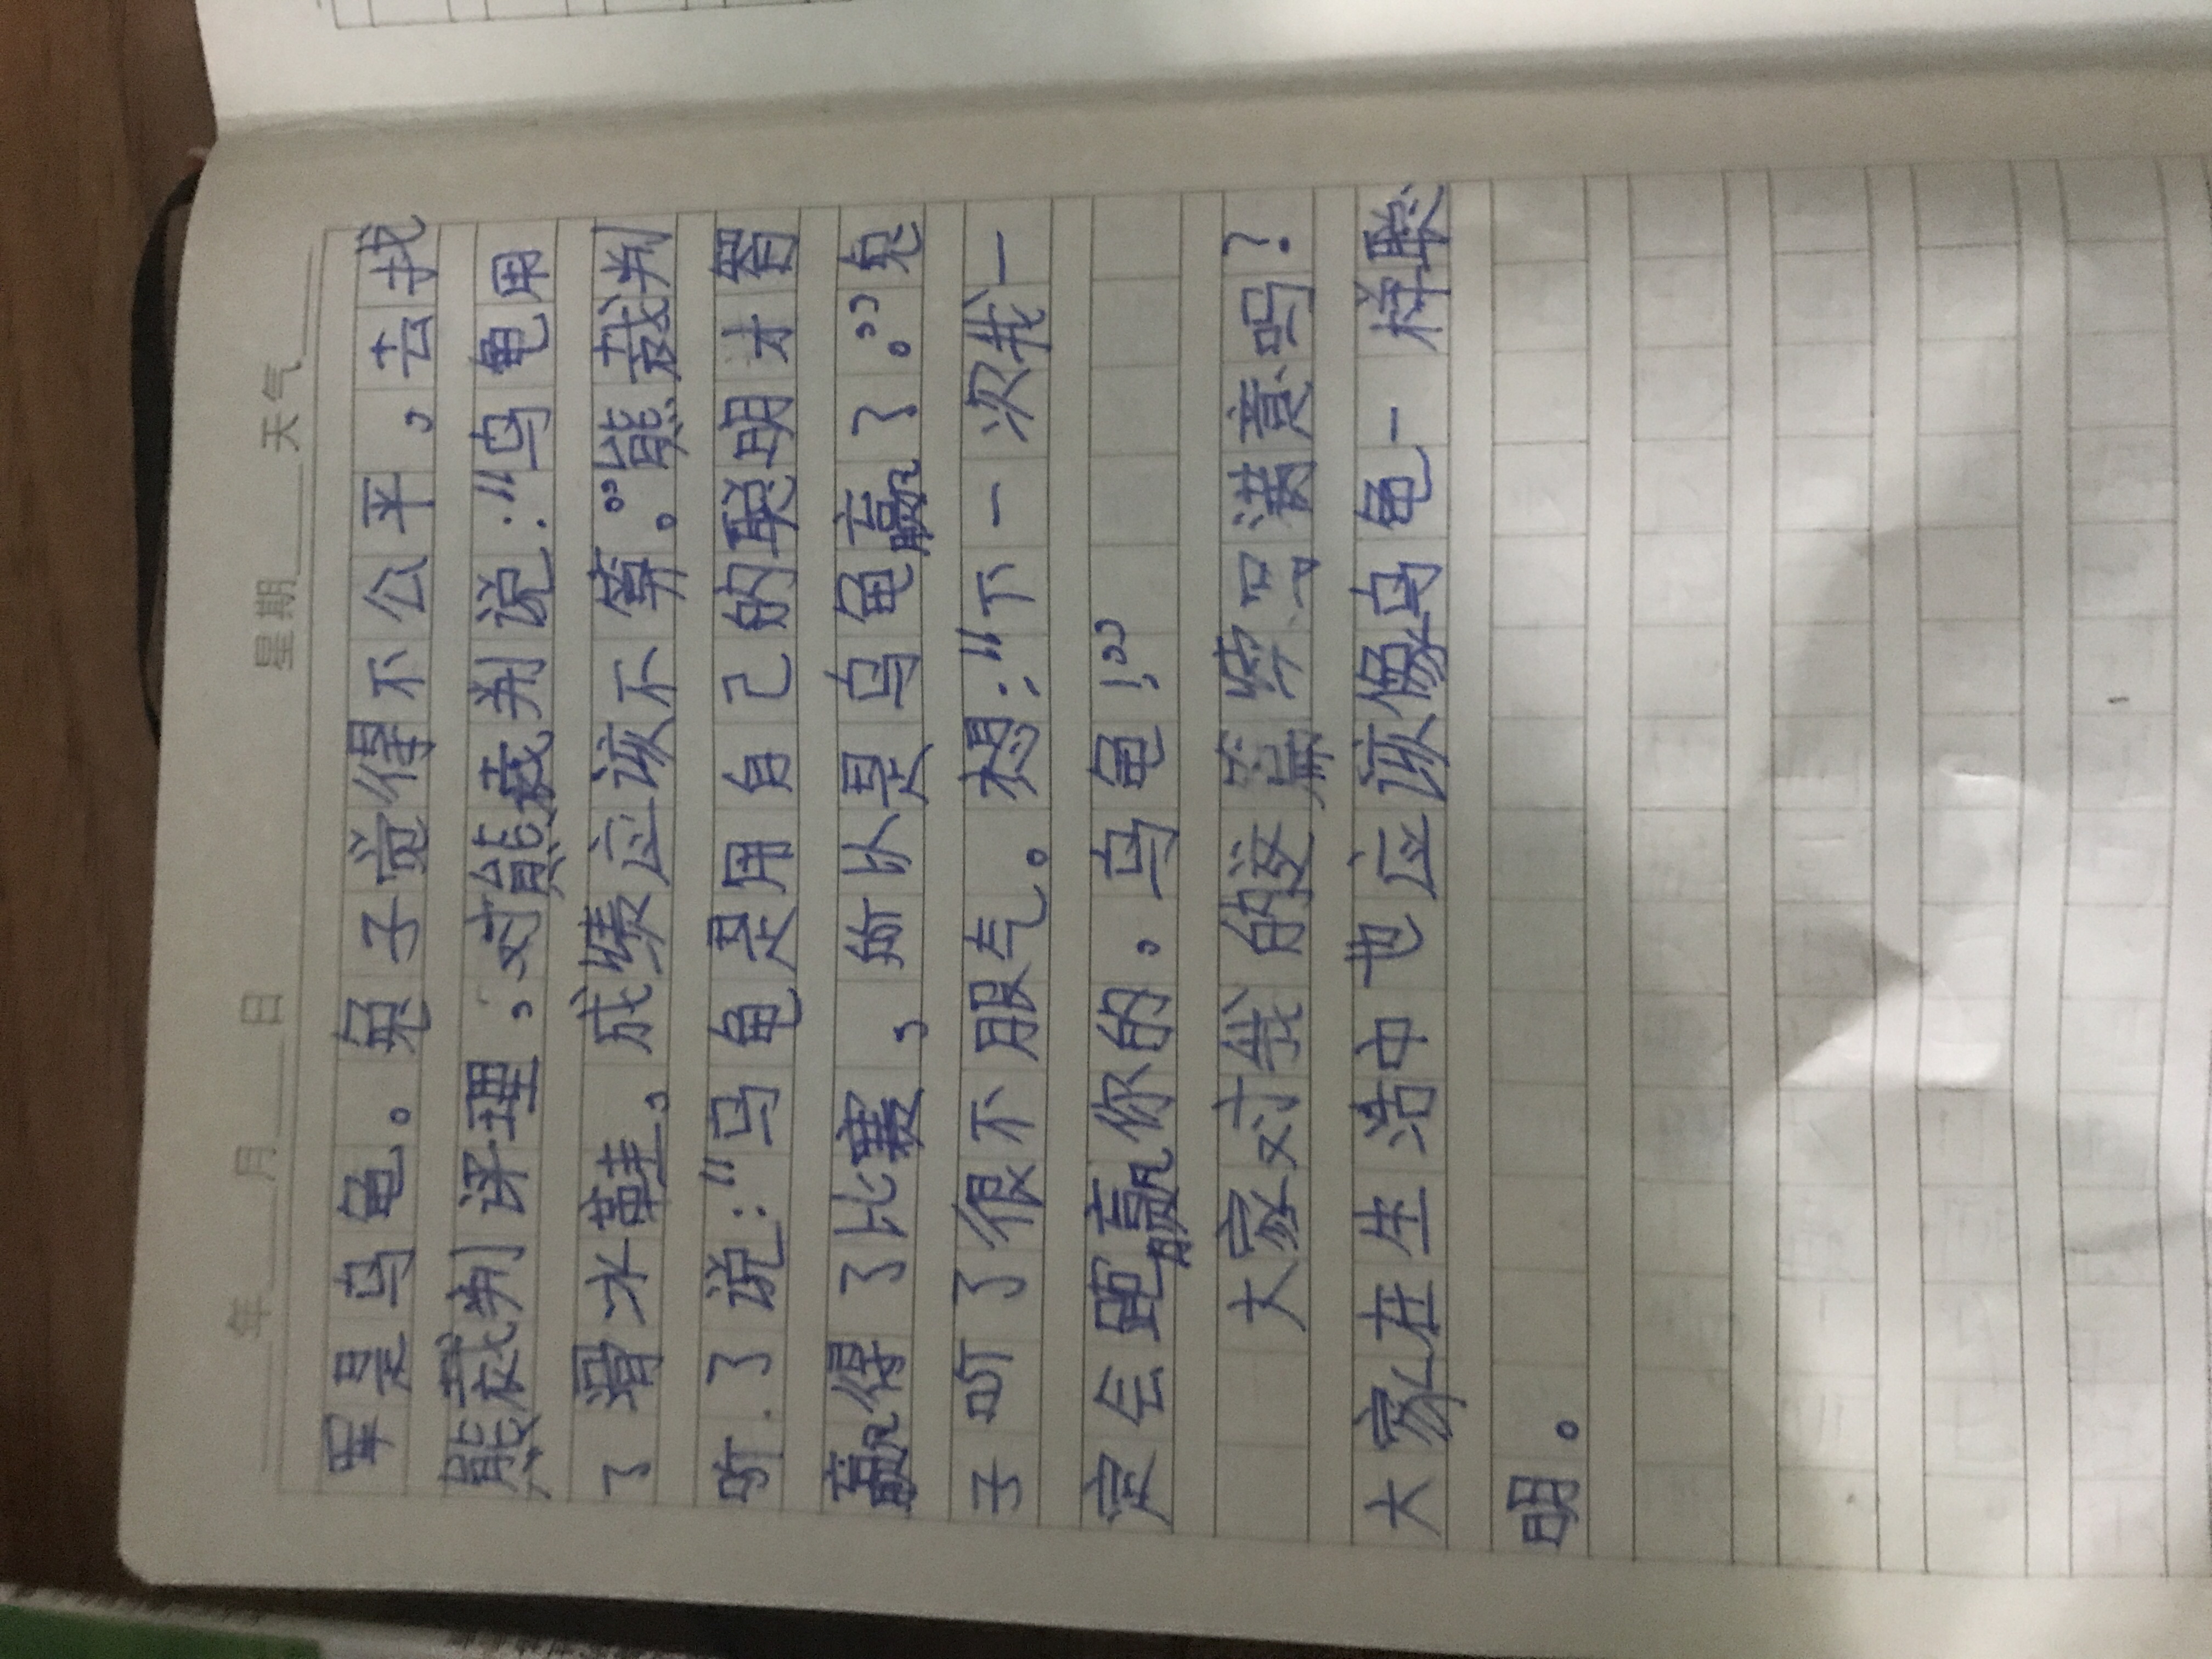 年 月 日 星期 天气
军是乌龟。兔子觉得不公平,去找
熊裁判评理,对熊裁判说:“乌龟用
了滑水鞋,成绩应该不算。”熊裁判
听了说:“乌龟是用自己的聪明才智
赢得了比赛,所以是乌龟赢了。”兔
子听了很不服气。想:“下一次我一
定会跑赢你的,乌龟!”
大家对我的这篇 满意吗?
大家在生活中也应该像乌龟一样聪
明。